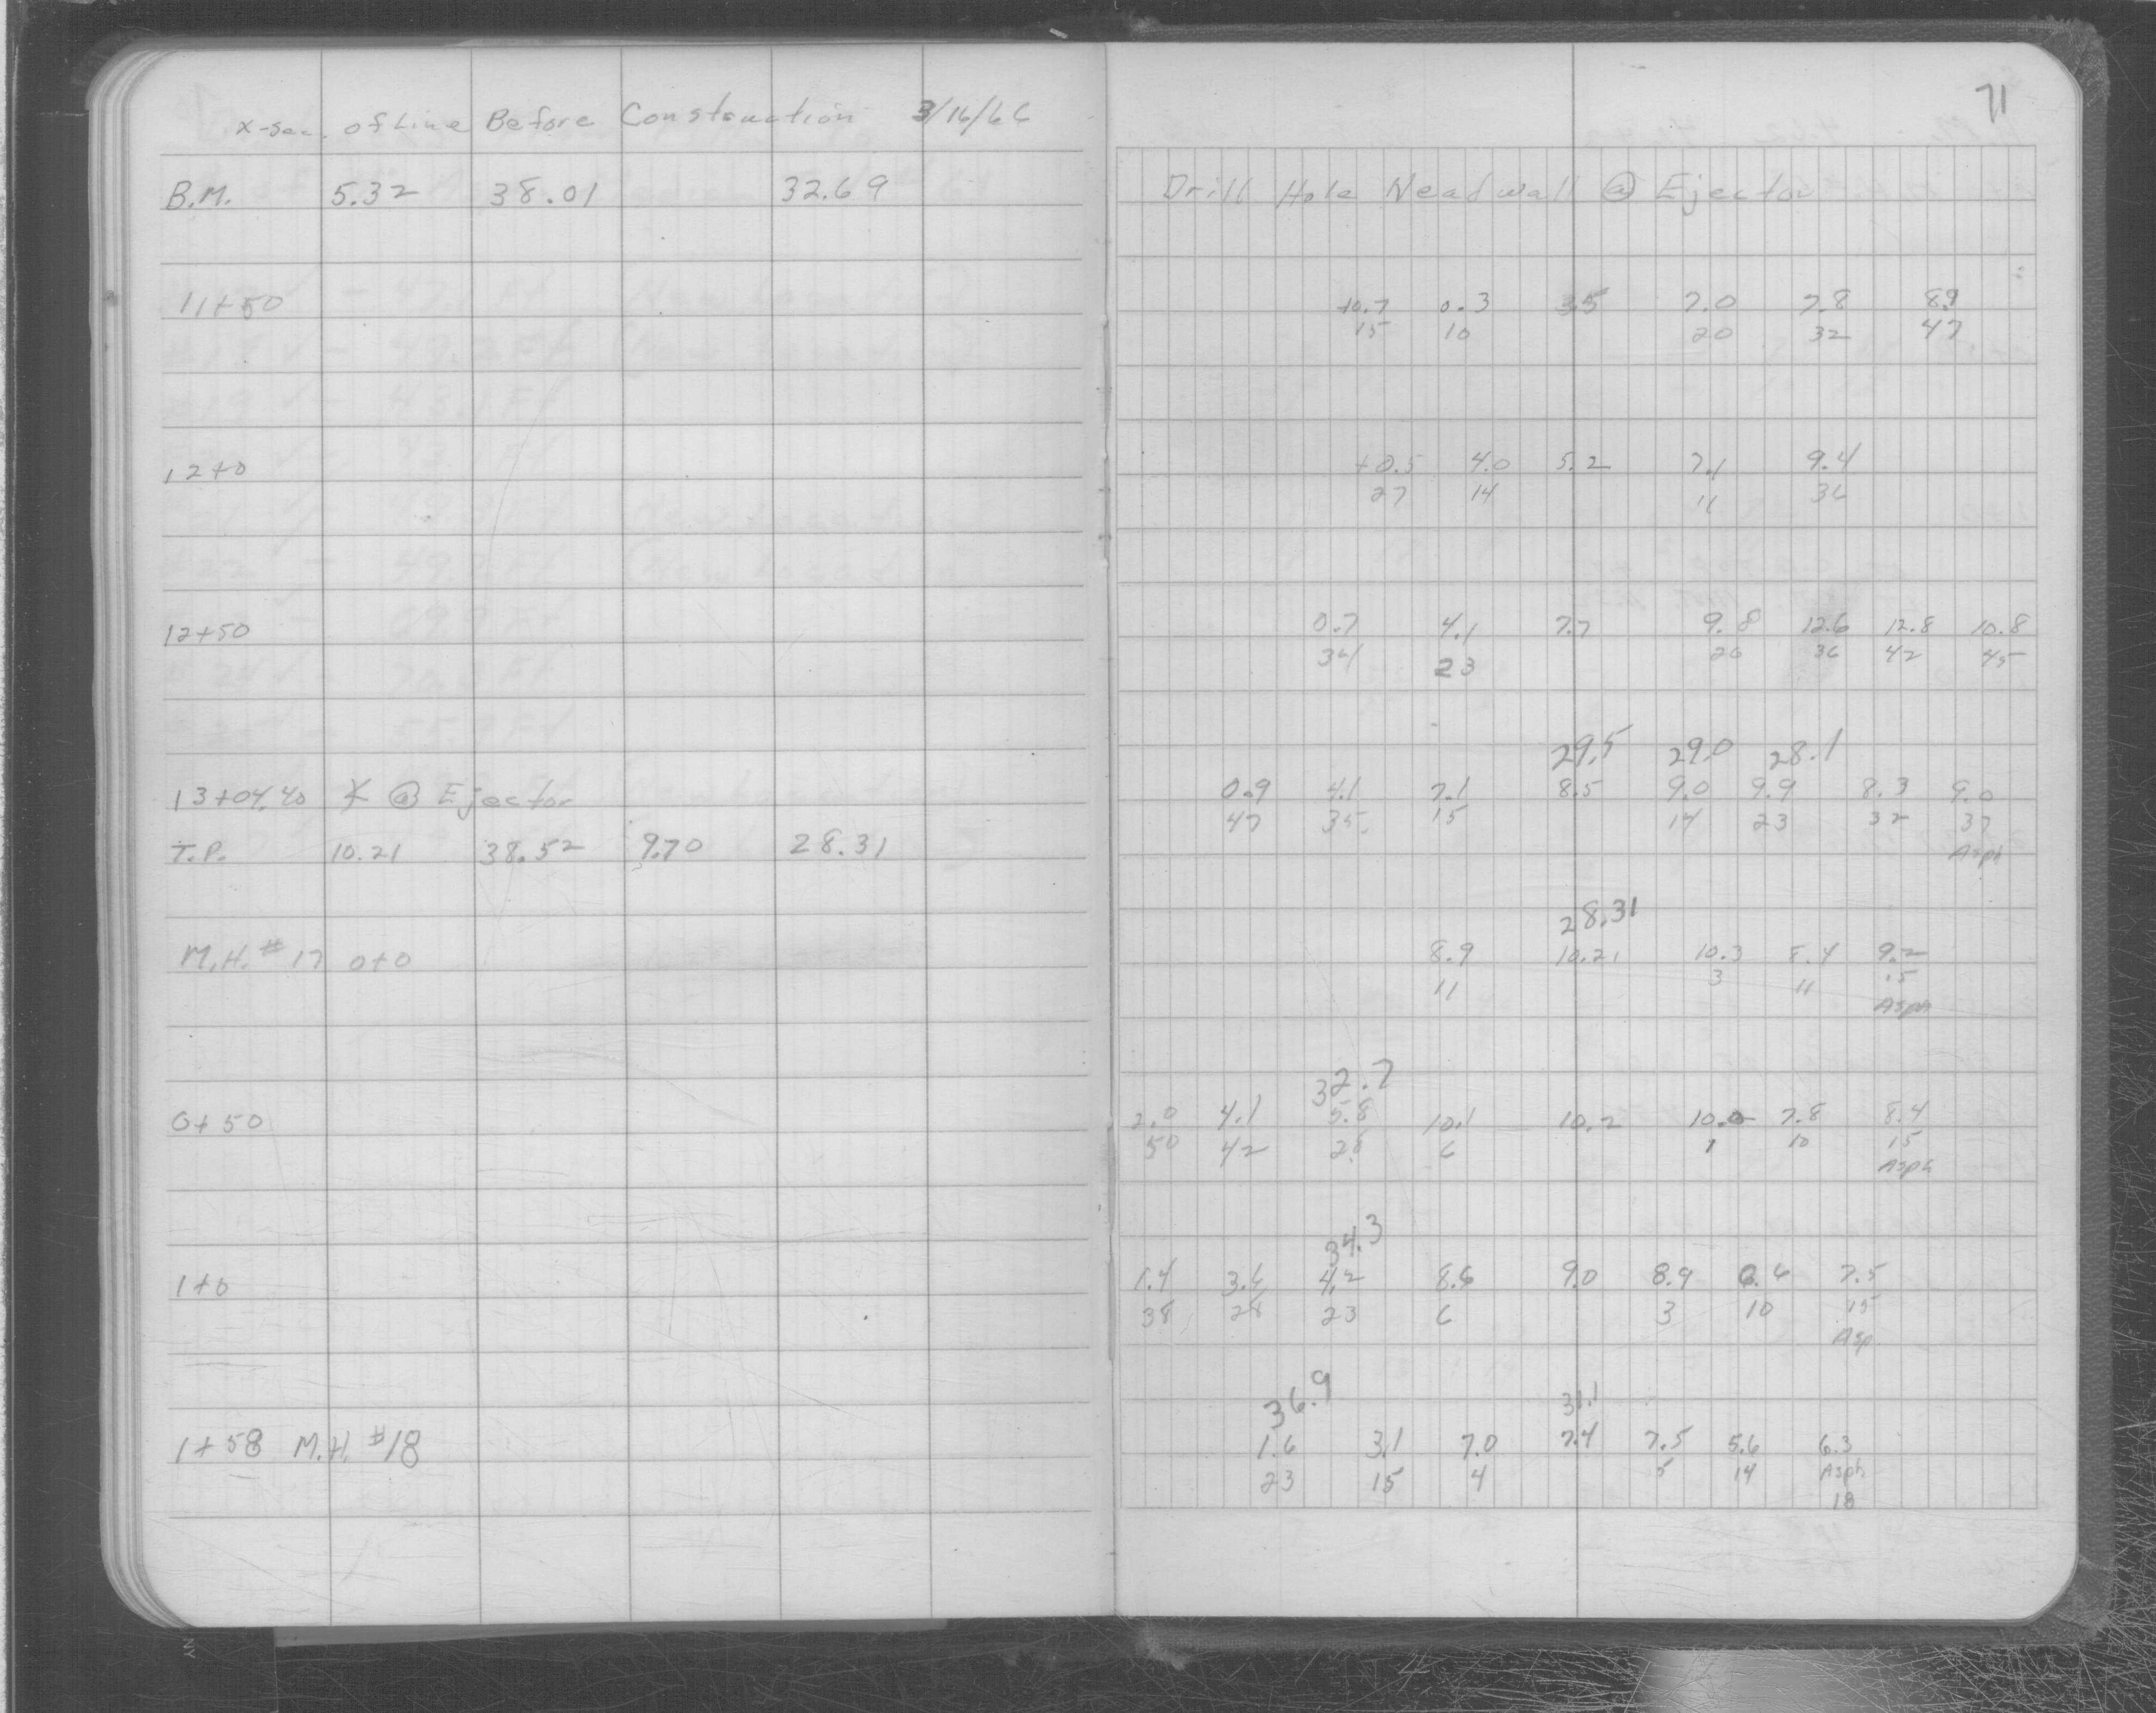 x-sec. of Line Before Construction 3/16/66
B.M. 5.32 38.01 32.69
11+50
12+0
12+50
13+04.40 @ Ejector
T.P. 10.21 38.52 9.70 28.31
M.H. #17 0+0
0+50
1+0
1+58 M.H. #18
71
Drill Hole Headwall @ Ejector
+0.7 0.3 3.5 7.0 7.8 8.9
15 10 20 32 47
+0.5 4.0 5.2 7.1 9.4
27 14 11 36
0.7 4.1 7.7 9.8 12.6 12.8 10.8
23 20 36 42 45
29.5 29.0 28.1
0.9 4.1 7.1 8.5 9.0 9.9 8.3 9.0
47 35 15 14 23 32 37
Asph
28.31
8.9 10.21 10.3 8.4 9.2
11 3 11 15
Asph
32.7
2.0 4.1 5.8 10.1 10.2 10.0 7.8 8.4
50 42 28 6 1 10 15
Asph
34.3
1.4 3.6 4.2 8.6 9.0 8.9 6.6 7.5
38 28 23 6 3 10 15
Asp
36.9 31.1
1.6 3.1 7.0 7.4 7.5 5.6 6.3
23 15 4 5 14 Asph
18